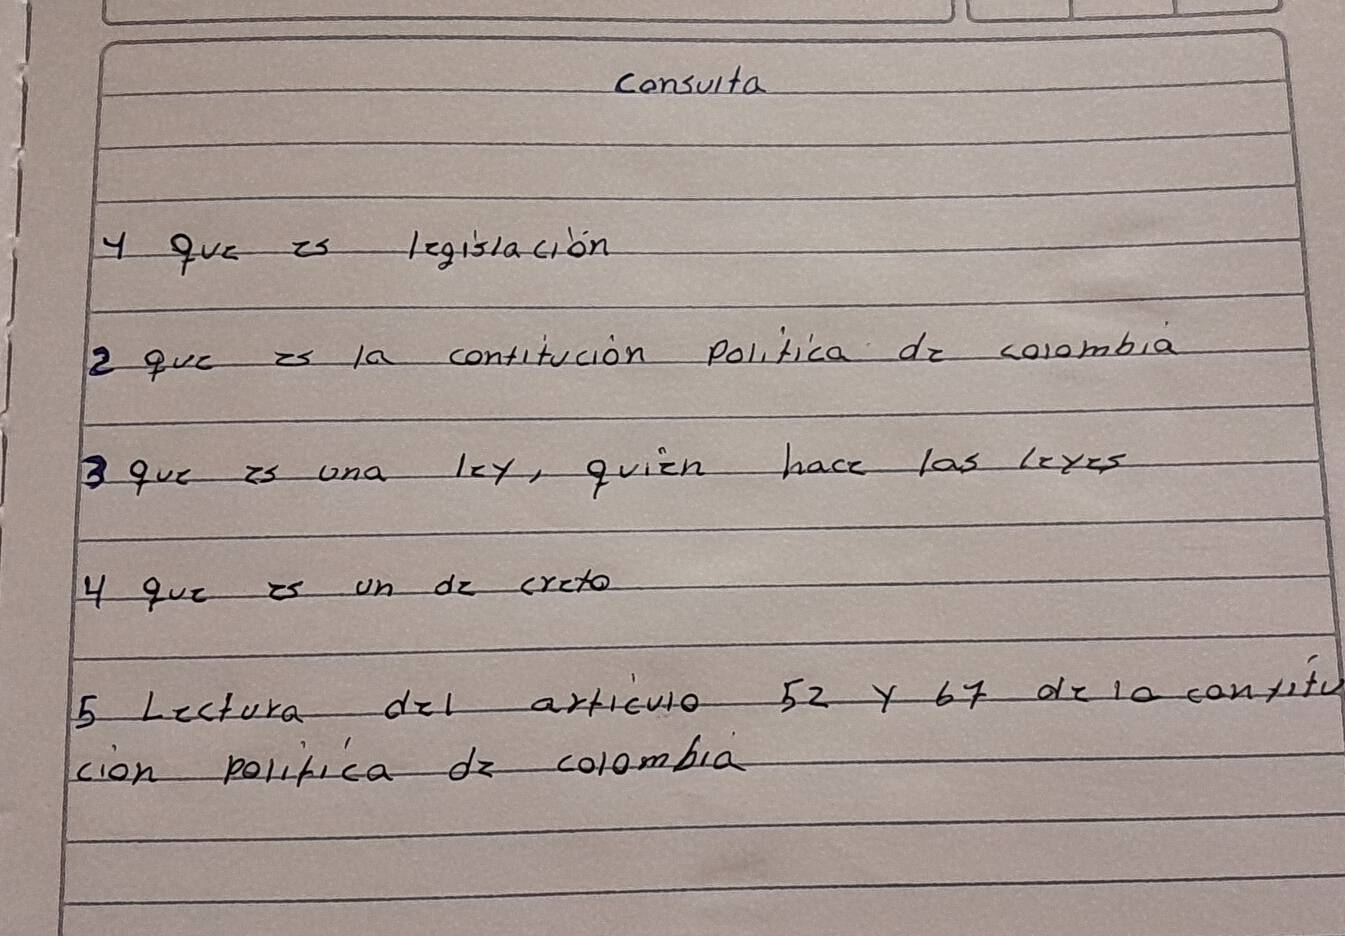 Consulta
1 que es legislación
2 que es la contitución política de colombia
3 que es una ley, quién hace las leyes
4 que es un de creto
5 Lectura del artículo 52 y 67 de la contitu
ción política de colombia